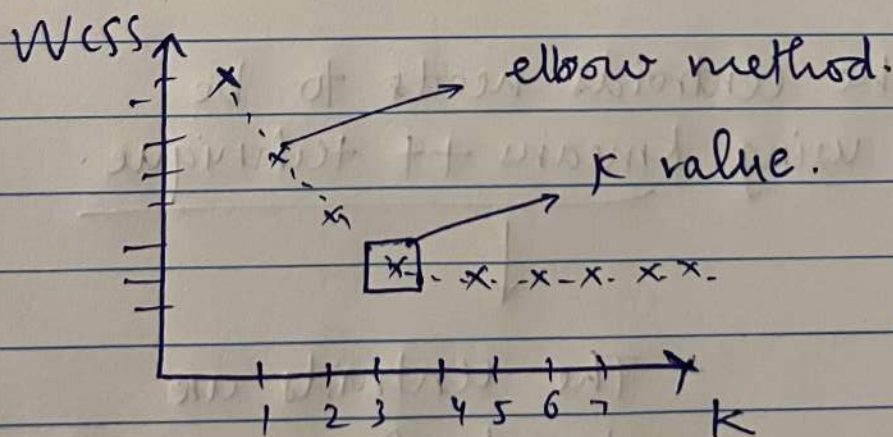 WCSS
elbow method.
K value.
1 2 3 4 5 6 7 K